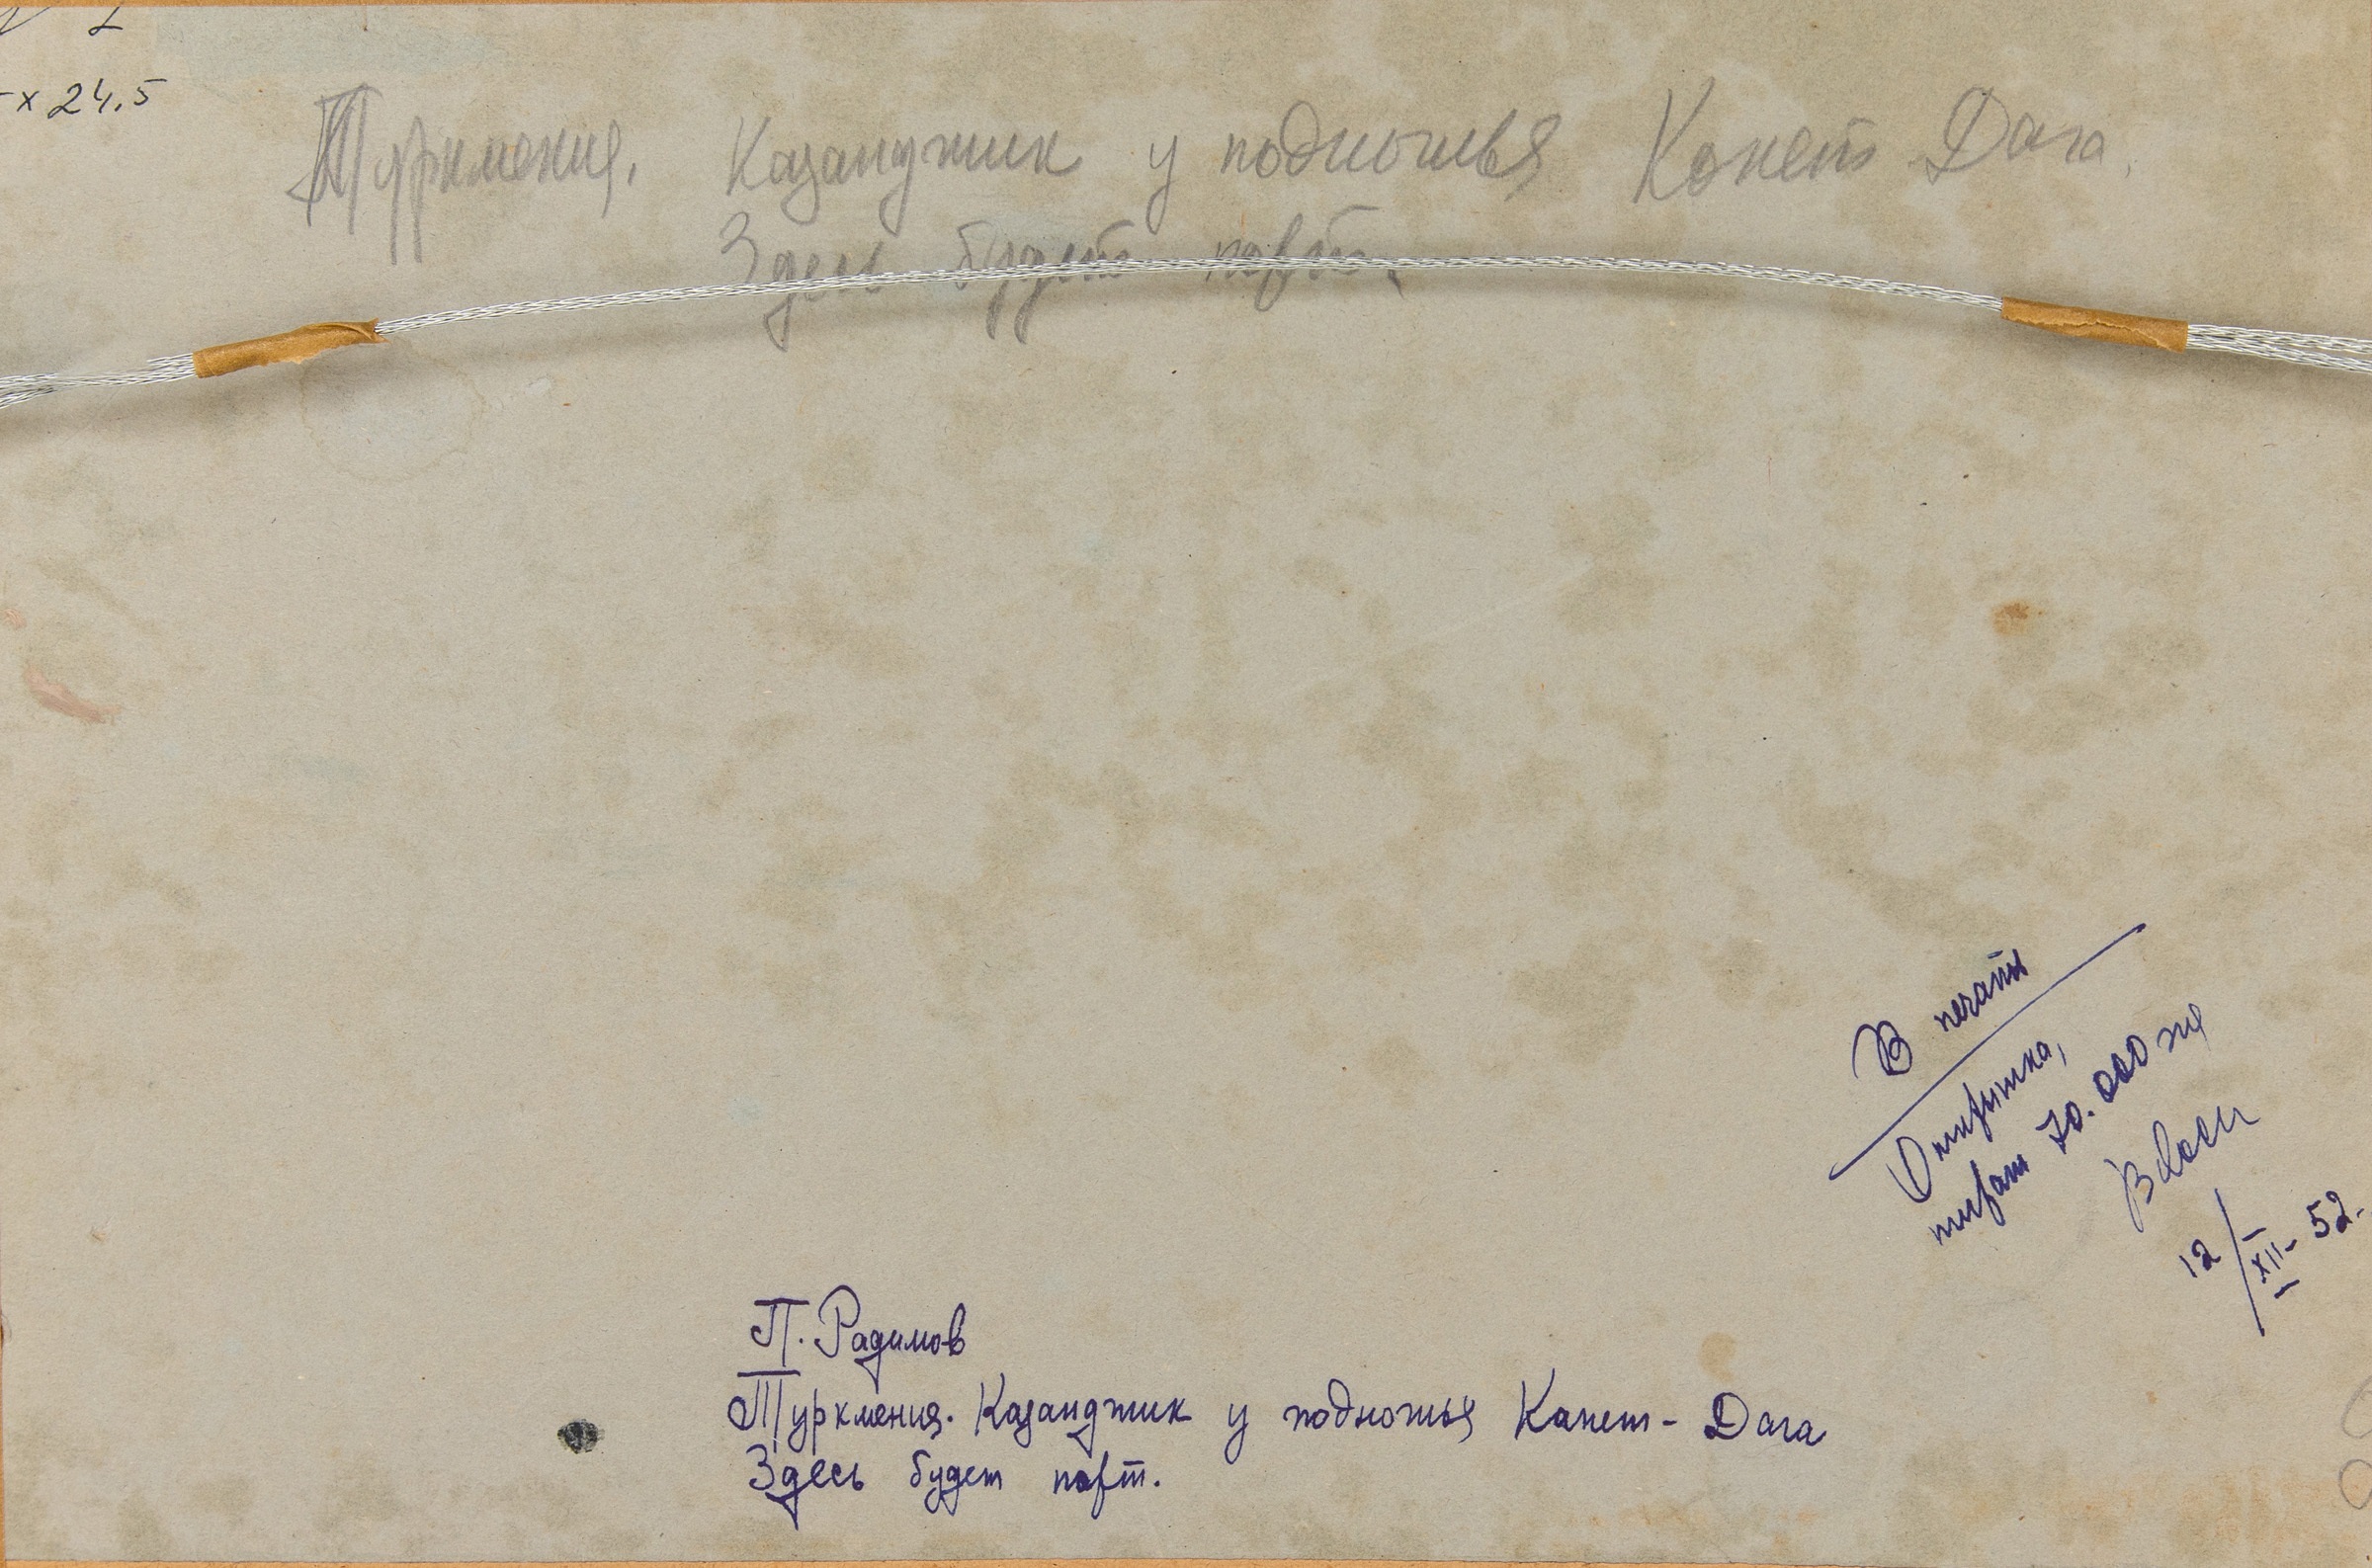 x 24.5
Туркмения. Казанджик у подножья Копет Дага.
Здесь будет порт.
В печать
Открытка,
тираж 70.000
12/XII-52.
П. Радимов
Туркмения. Казанджик у подножья Капет-Дага
Здесь будет порт.